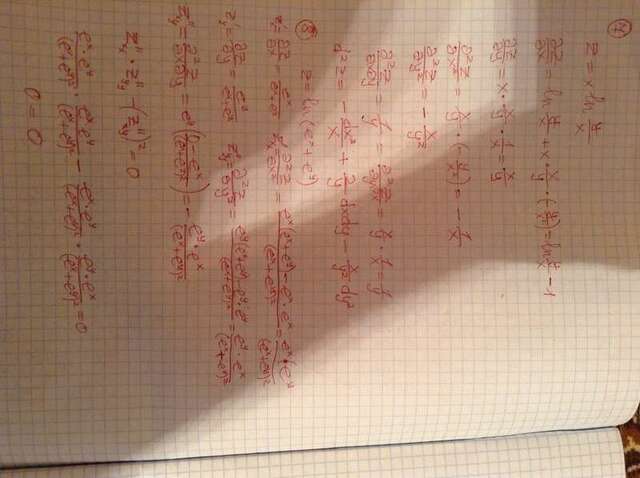 7
z = x ln y/x
∂z/∂x = ln y/x + x · x/y · (-y/x²) = ln y/x - 1
∂z/∂y = x · x/y · 1/x = x/y
∂²z/∂x² = x/y · (-y/x²) = - 1/x
∂²z/∂y² = - x/y²
∂²z/∂x∂y = 1/y = ∂²z/∂y∂x = x/y · 1/x = 1/y
d²z = - dx²/x + 2/y dxdy - x/y² dy²
8 z = ln(eˣ + eʸ)
z'ₓ = ∂z/∂x = eˣ/(eˣ+eʸ) z''ₓₓ = ∂²z/∂x² = (eˣ(eˣ+eʸ) - eˣ·eˣ)/(eˣ+eʸ)² = eˣ·eʸ/(eˣ+eʸ)²
z'_y = ∂z/∂y = eʸ/(eˣ+eʸ) z''_yy = ∂²z/∂y² = (eʸ(eˣ+eʸ) - eʸ·eʸ)/(eˣ+eʸ)² = eʸ·eˣ/(eˣ+eʸ)²
z''_xy = ∂²z/∂x∂y = eʸ((0 - eˣ)/(eˣ+eʸ)²) = - eʸ·eˣ/(eˣ+eʸ)²
z''_xx · z''_yy - (z''_xy)² = 0
eˣ·eʸ/(eˣ+eʸ)² · eˣ·eʸ/(eˣ+eʸ)² - eˣ·eʸ/(eˣ+eʸ)² · eʸ·eˣ/(eˣ+eʸ)² = 0
0 = 0